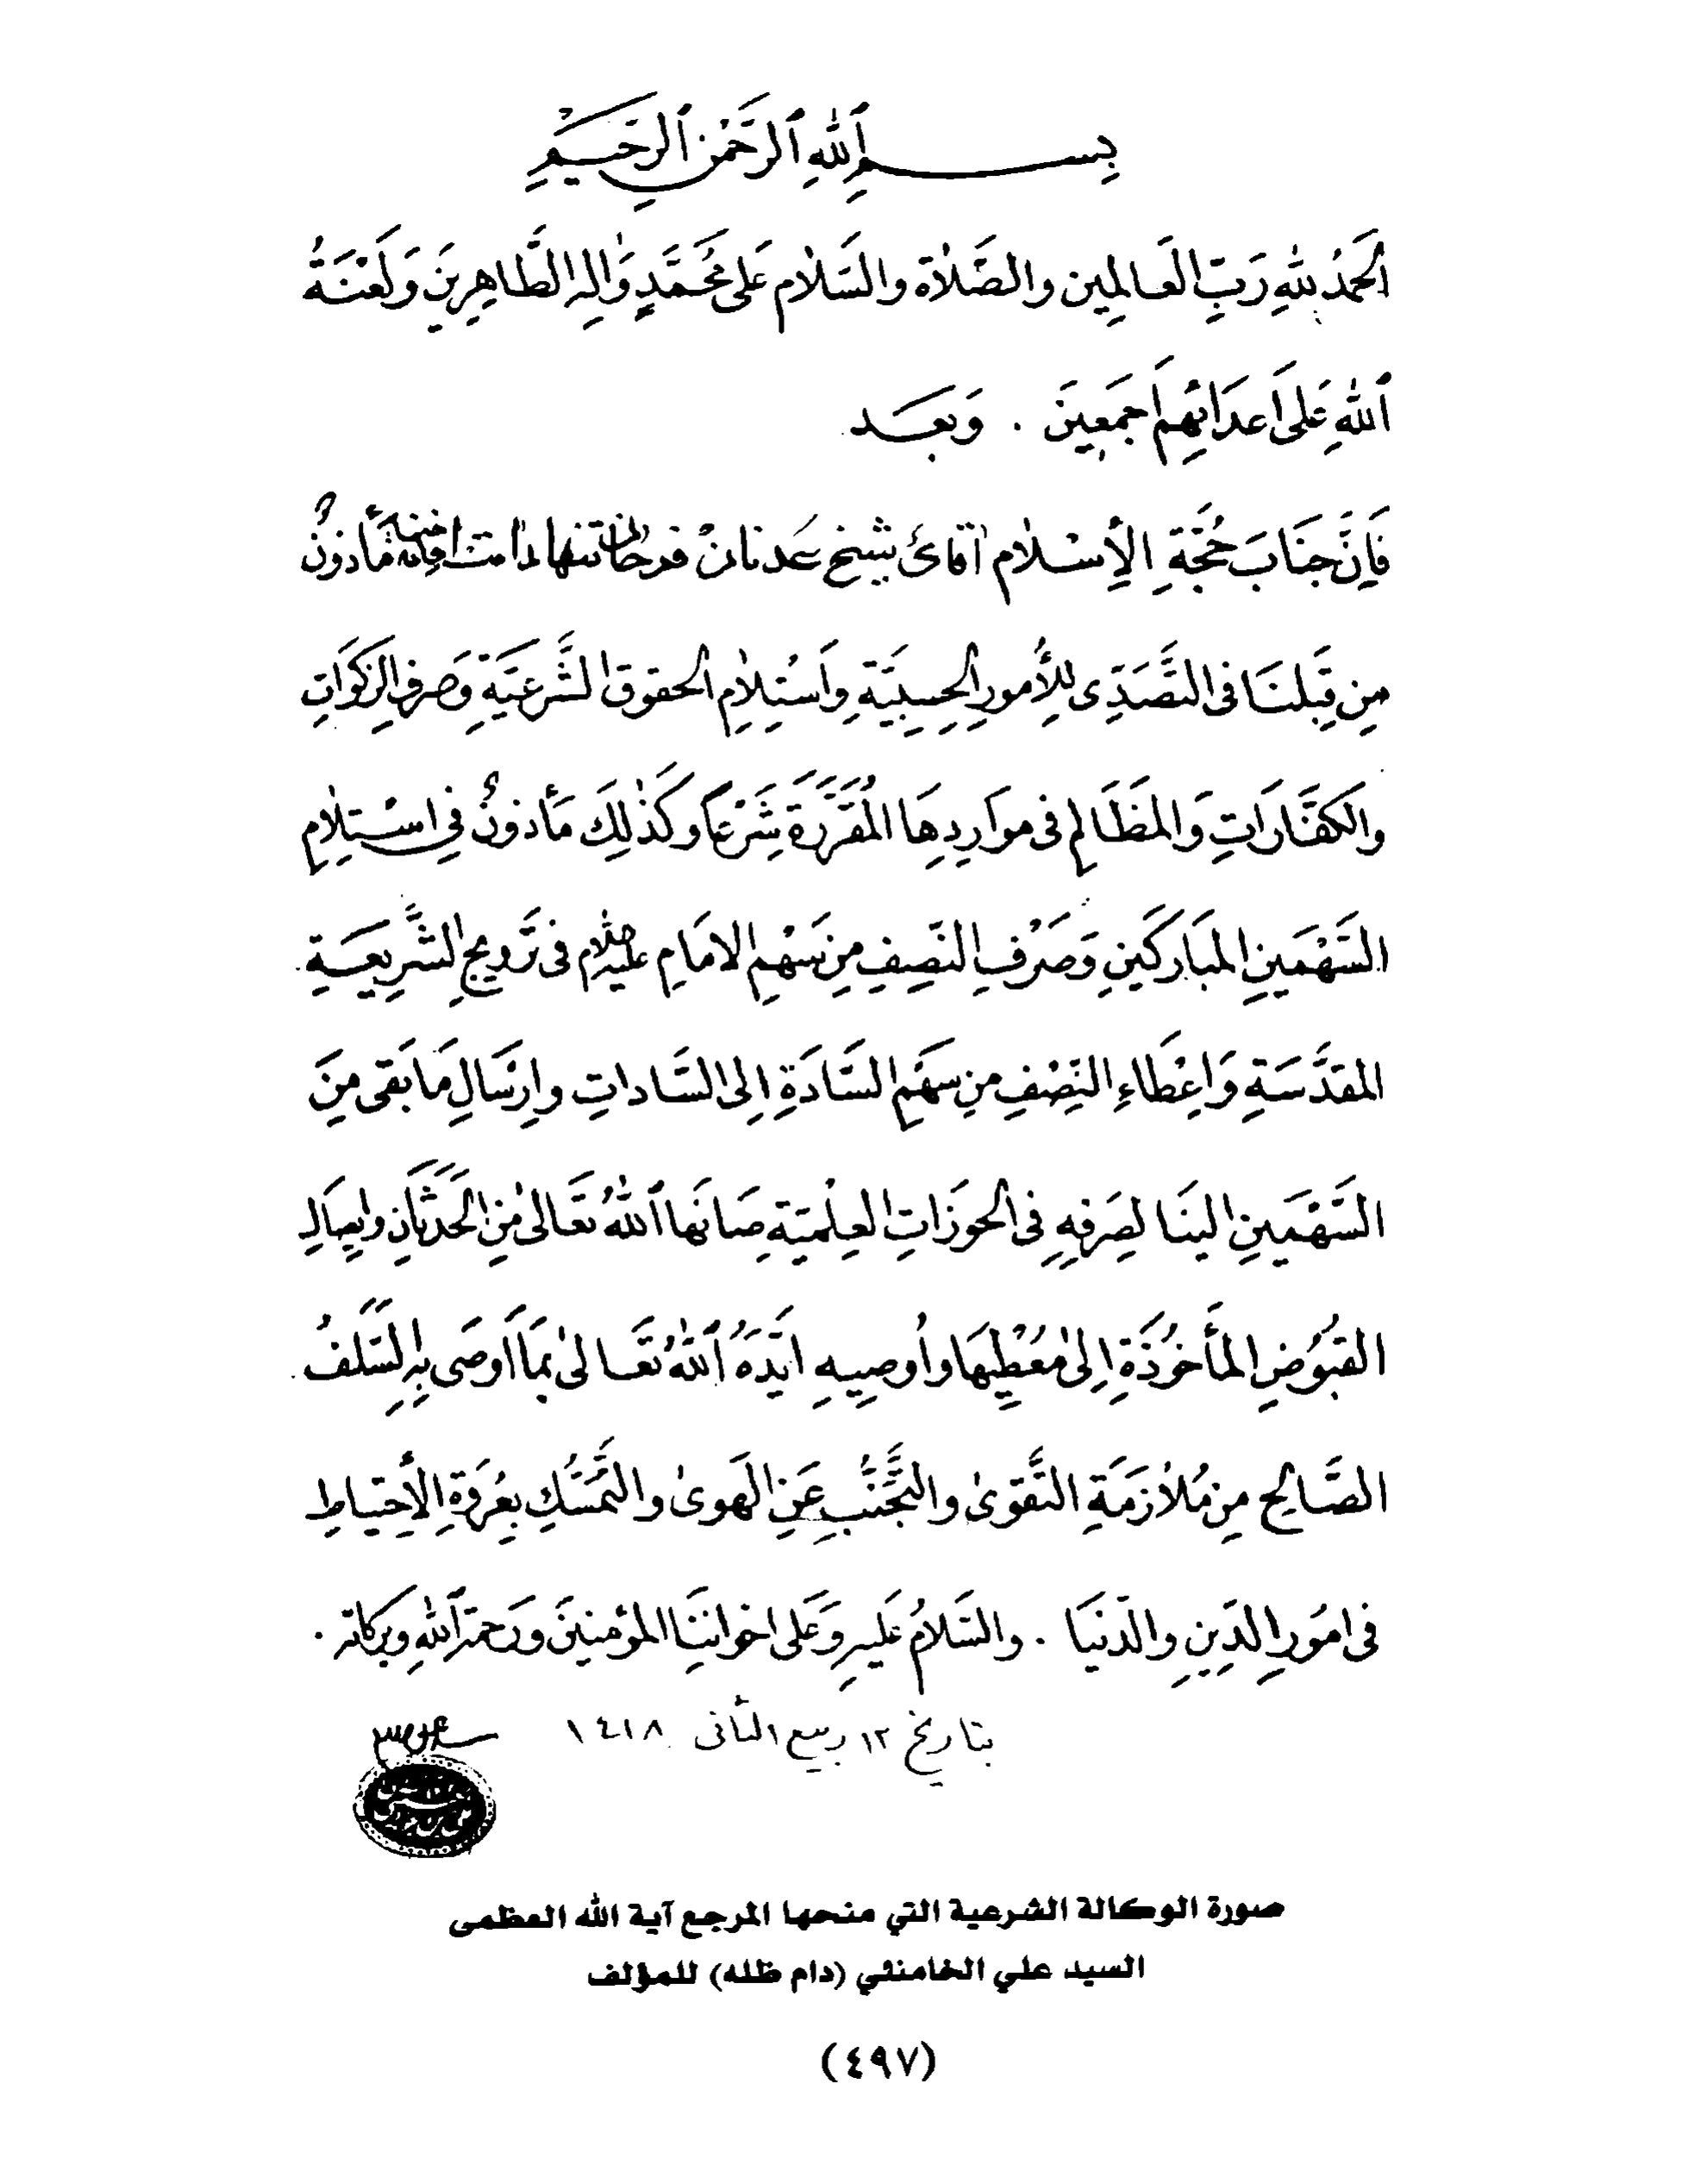 بِسْمِ ٱللهِ ٱلرَّحْمٰنِ ٱلرَّحِيْمِ
اَلحَمْدُ لِلّٰهِ رَبِّ العَالَمِين والصَّلاٰة والسَّلاٰم عَلىٰ مُحَمَّدٍ وَاٰلِهِ الطَّاهِرِينَ وَلَعْنَةُ
ٱللهِ عَلىٰ اَعدَائِهِم اَجمَعِينَ . وَبَعَد
فَاِنَّ جَنَابَ حُجَّةِ الاِسْلاٰم آقاىٔ شيخ عَدنانْ فرحان تنها دامت افاضاته مَأذونٌ
مِن قِبَلنَا فى التَّصَدِّى لِلأُمورِ الحِسبِيَّةِ وَاسْتِلاٰمِ الحقوق الشَّرعِيَّةِ وَصَرفِ الزَكَوَاتِ
وَالكَفَّارَاتِ وَالمَظَالِمِ فى مَوَارِدِهَا المُقَرَّرَة شَرْعَاً وكَذٰلِكَ مَأذونٌ فِى اسْتِلاٰمِ
السَّهْمَينِ المُبَارَكَينِ وَصَرْفِ النّصِفِ مِن سَهْمِ الامَامِ عليه السلام فى تَرويجِ الشَّرِيعَةِ
المقدَّسَةِ وَاِعْطَاءِ النِّصْفِ مِن سَهْمِ السَّادَةِ اِلى السَّاداتِ وارْسَالِ مَا بَقى مِنَ
السَّهْمَينِ اِلينَا لِصَرفِهِ فِى الحَوزَاتِ العِلْمِيَّةِ صَانَهَا ٱللهُ تَعَالىٰ مِن الحَدَثَانِ وايصَالِ
القبُوضِ المأخُوذَةِ اِلىٰ مُعْطِيهَا وأُوصِيهِ ايَّدَهُ ٱللهُ تَعَالىٰ بِمَا اَوصَى بِهِ السَّلَفُ
الصَّالِح مِن مُلاٰزَمَةِ التَّقوىٰ والتَجَنُّبِ عَنِ الهَوىٰ والتَّمَسُّكِ بِعُروَةِ الاِحتِياطِ
فى امُورِ الدِّينِ والدّنيَا . والسَّلاٰمُ عَلَيهِ وَعَلى اخوانِنَا المؤمنينَ وَرَحمَة ٱللهِ وبركاته .
بتاريخ ١٢ ربيع الثانى ١٤١٨
صورة الوكالة الشرعية التي منحها المرجع آية الله العظمى
السيد علي الخامنئي (دام ظله) للمؤلف
(٤٩٧)